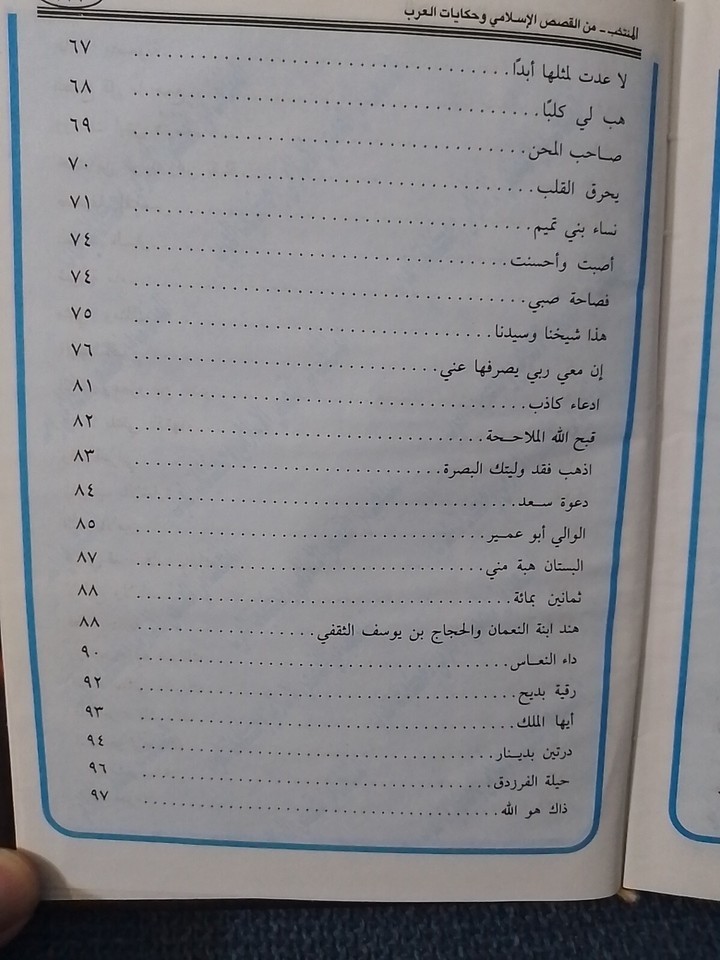 المنتخب - من القصص الإسلامي وحكايات العرب
لا عدت لمثلها أبدًا ................ ٦٧
هب لي كلبًا ................ ٦٨
صاحب المحن ................ ٦٩
يحرق القلب ................ ٧٠
نساء بني تميم ................ ٧١
أصبت وأحسنت ................ ٧٤
فصاحة صبي ................ ٧٤
هذا شيخنا وسيدنا ................ ٧٥
إن معي ربي يصرفها عني ................ ٧٦
ادعاء كاذب ................ ٨١
قبح الله الملاححة ................ ٨٢
اذهب فقد وليتك البصرة ................ ٨٣
دعوة سعد ................ ٨٤
الوالي أبو عمير ................ ٨٥
البستان هبة مني ................ ٨٧
ثمانين بمائة ................ ٨٨
هند ابنة النعمان والحجاج بن يوسف الثقفي ................ ٨٨
داء النعاس ................ ٩٠
رقية بديح ................ ٩٢
أيها الملك ................ ٩٣
درتين بدينار ................ ٩٤
حيلة الفرزدق ................ ٩٦
ذاك هو الله ................ ٩٧